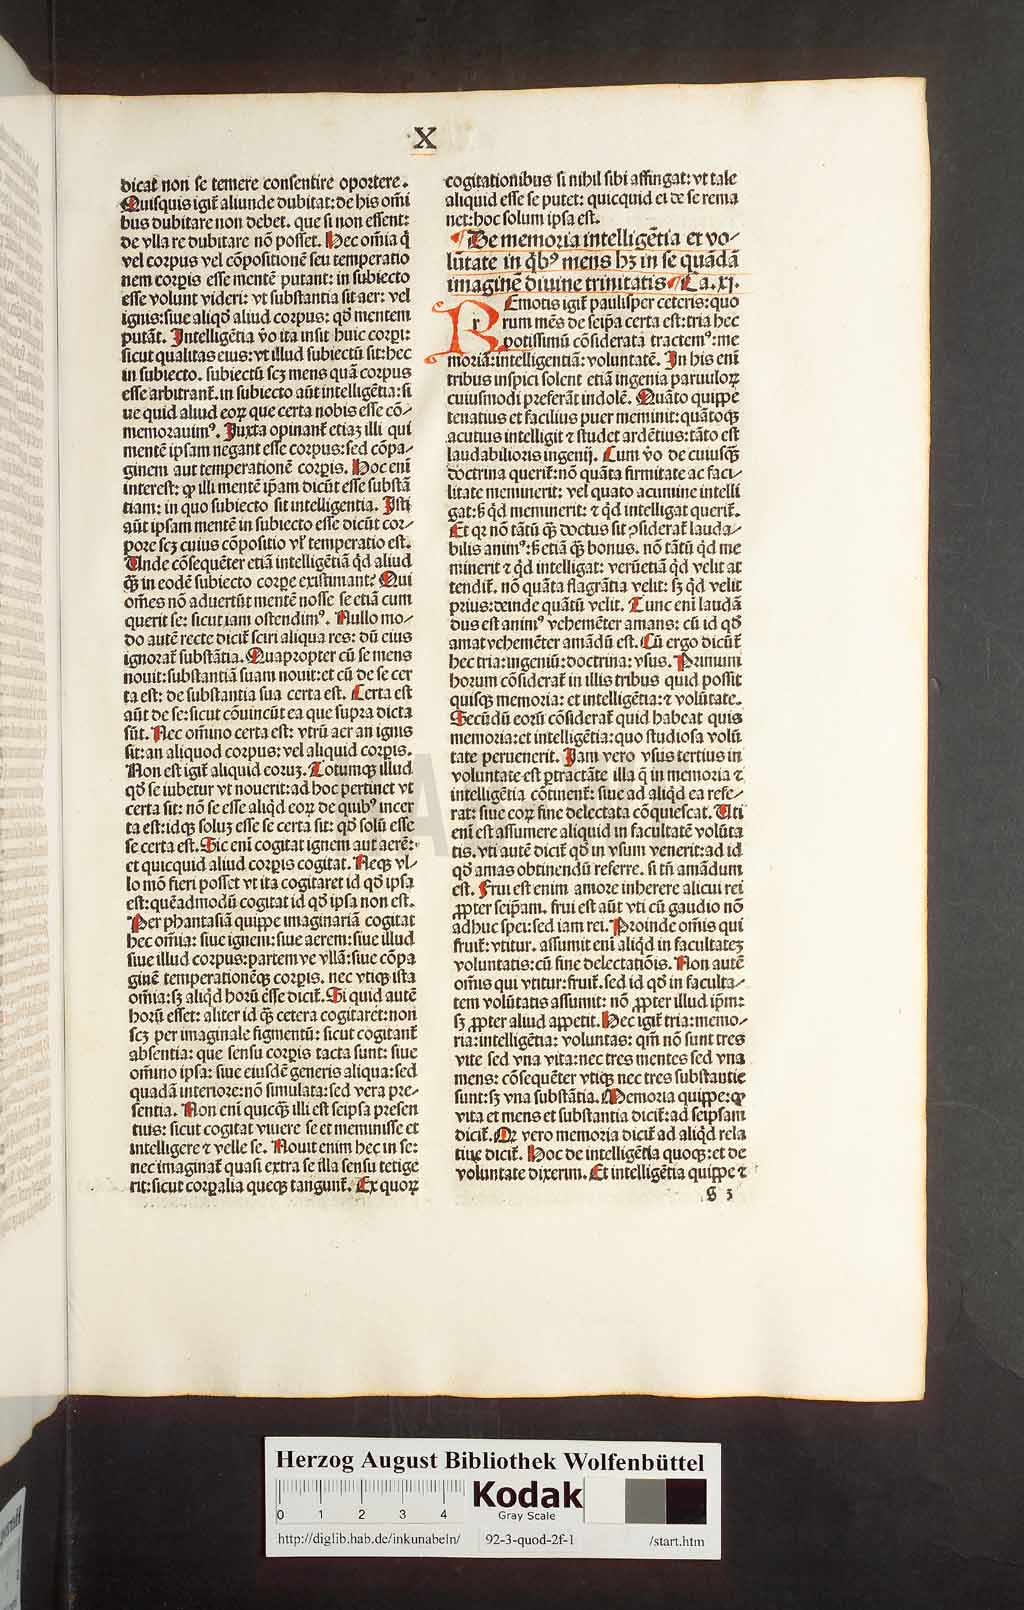 X
dicat non se temere consentire oportere.
Quisquis igit᷑ aliunde dubitat: de his om̄i
bus dubitare non debet. que si non essent:
de vlla re dubitare nō posset. Hec om̄ia q̄
vel corpus vel cōpositionē seu temperatio
nem corꝑis esse mentē putant: in subiecto
esse volunt videri: vt substantia sit aer: vel
ignis: siue aliqd̓ aliud corpus: qd̓ mentem
putāt. Intelligētia v̓o ita insit huic corꝑi:
sicut qualitas eius: vt illud subiectū sit: hec
in subiecto. subiectū scꝫ mens quā corpus
esse arbitrant᷑. in subiecto aūt intelligētia: si
ue quid aliud eoꝝ que certa nobis esse cō-
memorauimꝰ. Juxta opinant᷑ etiaꝫ illi qui
mentē ipsam negant esse corpus: sed cōpa-
ginem aut temperationē corꝑis. Hoc enī
interest: ꝙ illi mentē ip̄am dicūt esse substā
tiam: in quo subiecto sit intelligentia. Isti
aūt ipsam mentē in subiecto esse dicūt cor-
pore scꝫ cuius cōpositio vl̓ temperatio est.
Unde cōsequēter etiā intelligētiā qd̓ aliud
qꝫ̄ in eodē subiecto corꝑe existimant? Qui
om̄es nō aduertūt mentē nosse se etiā cum
querit se: sicut iam ostendimꝰ. Nullo mo-
do autē recte dicit᷑ sciri aliqua res: dū eius
ignorat᷑ substātia. Quapropter cū se mens
nouit: substantiā suam nouit: et cū de se cer
ta est: de substantia sua certa est. Certa est
aūt de se: sicut cōuincūt ea que supra dicta
sūt. Nec om̄ino certa est: vtrū aer an ignis
sit: an aliquod corpus: vel aliquid corꝑis.
Non est igit᷑ aliquid eoruꝫ. Totumqꝫ illud
qd̓ se iubetur vt nouerit: ad hoc pertinet vt
certa sit: nō se esse aliqd̓ eoꝝ de quibꝰ incer
ta est: idqꝫ soluꝫ esse se certa sit: qd̓ solū esse
se certa est. Sic enī cogitat ignem aut aerē:
et quicquid aliud corꝑis cogitat. Neqꝫ vl-
lo mō fieri posset vt ita cogitaret id qd̓ ipsa
est: quēadmodū cogitat id qd̓ ipsa non est.
Per phantasiā quippe imaginariā cogitat
hec om̄ia: siue ignem: siue aerem: siue illud
siue illud corpus: partem ve vllā: siue cōpa
ginē temperationēqꝫ corꝑis. nec vtiqꝫ ista
om̄ia: sꝫ aliqd̓ horū esse dicit᷑. Si quid autē
horū esset: aliter id qꝫ̄ cetera cogitaret: non
scꝫ per imaginale figmentū: sicut cogitant᷑
absentia: que sensu corꝑis tacta sunt: siue
om̄ino ipsa: siue eiusdē generis aliqua: sed
quadā interiore: nō simulata: sed vera pre-
sentia. Non enī quicqꝫ̄ illi est seipsa presen
tius: sicut cogitat viuere se et meminisse et
intelligere ⁊ velle se. Nouit enim hec in se:
nec imaginat᷑ quasi extra se illa sensu tetige
rit: sicut corꝑalia queqꝫ tangunt᷑. Ex quoꝝ
cogitationibus si nihil sibi affingat: vt tale
aliquid esse se putet: quicquid ei de se rema
net: hoc solum ipsa est.
¶ De memoria intelligētia et vo-
lūtate in qb̓ꝰ mens hꝫ in se quādā
imaginē diuine trinitatis ¶ Ca. XI.
REmotis igit᷑ paulisper ceteris: quo
rum mēs de seip̄a certa est: tria hec
potissimū cōsiderata tractemꝰ: me
moriā: intelligentiā: voluntatē. In his enī
tribus inspici solent etiā ingenia paruuloꝝ
cuiusmodi preferāt indolē. Quāto quippe
tenatius et facilius puer meminit: quātoqꝫ
acutius intelligit ⁊ studet ardētius: tāto est
laudabilioris ingenij. Cum v̓o de cuiusqꝫ
doctrina querit᷑: nō quāta firmitate ac faci-
litate meminerit: vel quāto acumine intelli
gat: sꝫ qd̓ meminerit: ⁊ qd̓ intelligat querit᷑.
Et qꝛ nō tātū qꝫ̄ doctus sit ↄsiderat᷑ lauda-
bilis animꝰ: sꝫ etiā qꝫ̄ bonus. nō tātū qd̓ me
minerit ⁊ qd̓ intelligat: verūetiā qd̓ velit at
tendit᷑. nō quāta flagrātia velit: sꝫ qd̓ velit
prius: deinde quātū velit. Tunc enī laudā
dus est animꝰ vehemēter amans: cū id qd̓
amat vehemēter amādū est. Cū ergo dicūt᷑
hec tria: ingeniū: doctrina: vsus. Primum
horum cōsiderat᷑ in illis tribus quid possit
quisqꝫ memoria: et intelligētia: ⁊ volūtate.
Secūdū eorū cōsiderat᷑ quid habeat quis
memoria: et intelligētia: quo studiosa volū
tate peruenerit. Jam vero vsus tertius in
voluntate est ꝑtractāte illa q̄ in memoria ⁊
intelligētia cōtinent᷑: siue ad aliqd̓ ea refe-
rat: siue eoꝝ fine delectata cōquiescat. Uti
enī est assumere aliquid in facultatē volūta
tis. vti autē dicit᷑ qd̓ in vsum venerit: ad id
qd̓ amas obtinendū referre. si tn̄ amādum
est. Frui est enim amore inherere alicui rei
ꝓpter seip̄am. frui est aūt vti cū gaudio nō
adhuc spei: sed iam rei. Proinde om̄is qui
fruit᷑: vtitur. assumit enī aliqd̓ in facultateꝫ
voluntatis: cū fine delectatiōis. Non autē
om̄is qui vtitur: fruit᷑. sed id qd̓ in faculta-
tem volūtatis assumit: nō ꝓpter illud ip̄m:
sꝫ ꝓpter aliud appetit. Hec igit᷑ tria: memo-
ria: intelligētia: voluntas: qm̄ nō sunt tres
vite sed vna vita: nec tres mentes sed vna
mens: cōsequēter vtiqꝫ nec tres substantie
sunt: sꝫ vna substātia. Memoria quippe: ꝙ
vita et mens et substantia dicit᷑: ad seipsam
dicit᷑. Qꝙ vero memoria dicit᷑ ad aliqd̓ rela
tiue dicit᷑. Hoc de intelligētia quoqꝫ: et de
voluntate dixerim. Et intelligētia quippe ⁊
g 3
Herzog August Bibliothek Wolfenbüttel
0 1 2 3 4
Kodak
Gray Scale
http://diglib.hab.de/inkunabeln/ 92-3-quod-2f-1 /start.htm